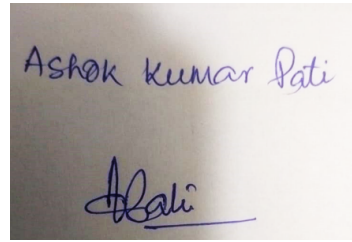 Ashok Kumar Pati
APati